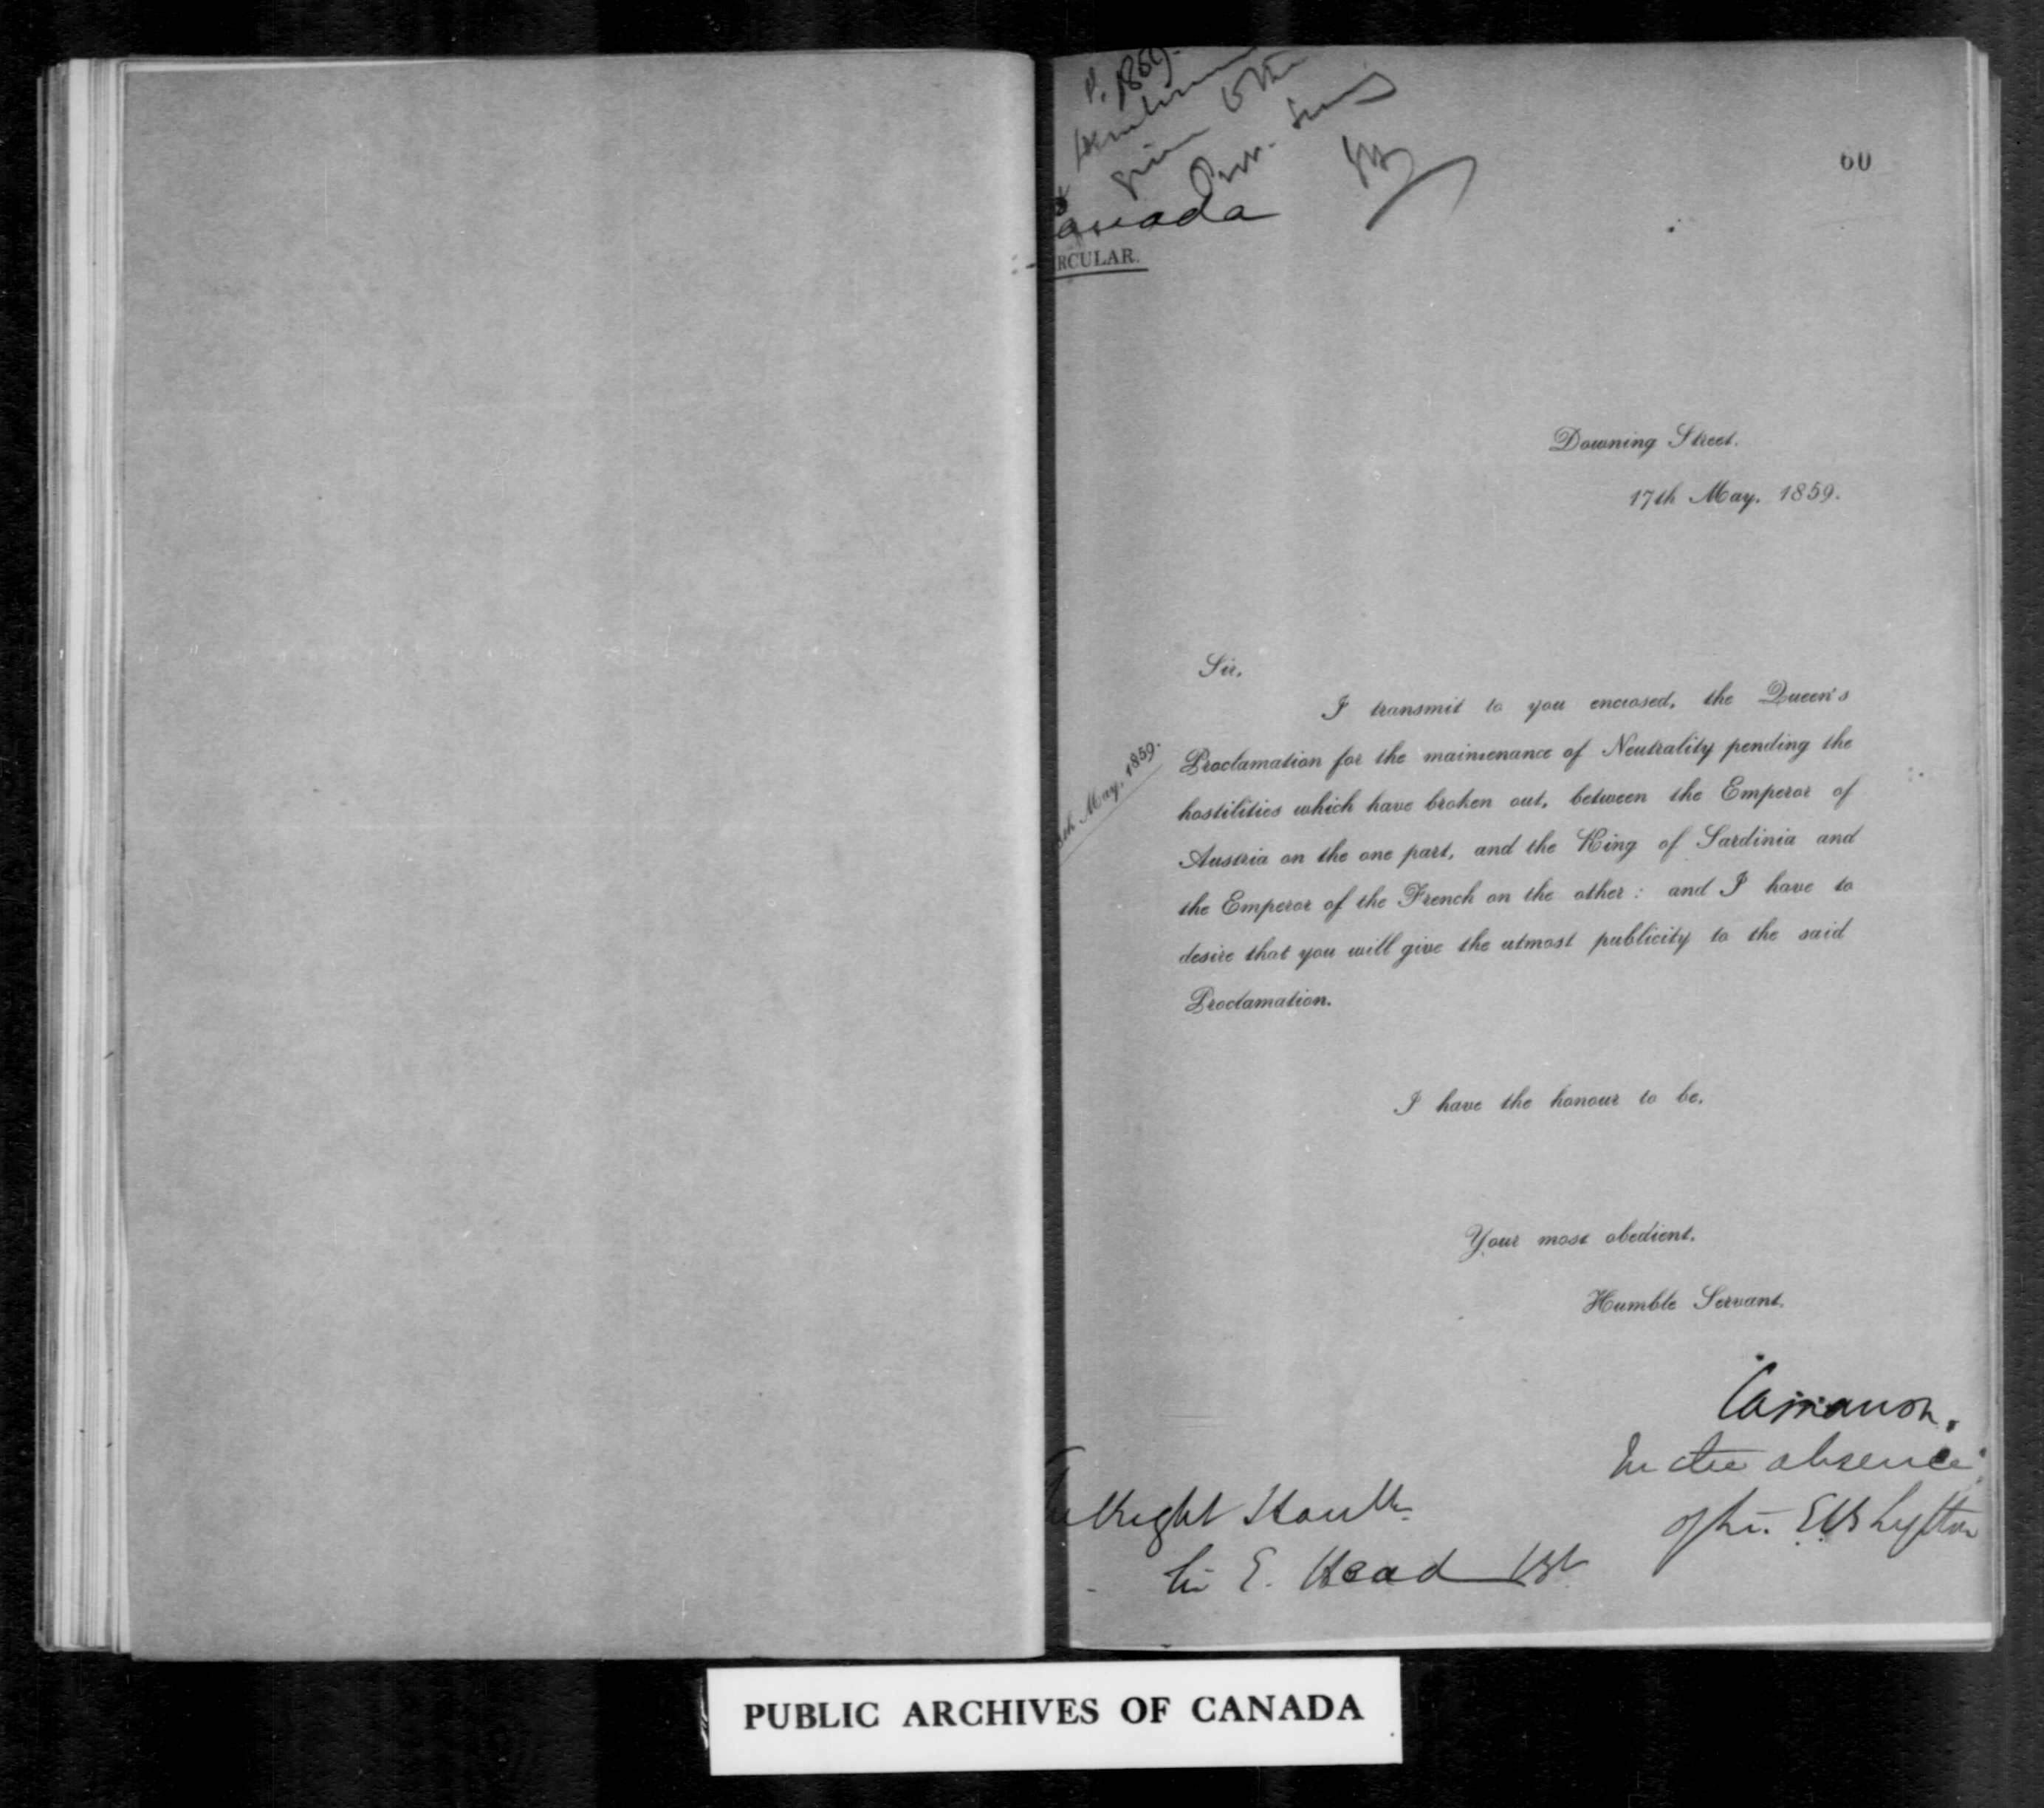 1859.
60
anada
RCULAR.
Downing Street.
17th May, 1859.
Sir,
I transmit to you enclosed, the Queen's
th May, 1859.
Proclamation for the maintenance of Neutrality pending the
hostilities which have broken out, between the Emperor of
Austria on the one part, and the King of Sardinia and
the Emperor of the French on the other : and I have to
desire that you will give the utmost publicity to the said
Proclamation.
I have the honour to be,
Your most obedient,
Humble Servant,
Carnarvon.
In the absence
of Sir E B Lytton
Right Honble
Sir E. Head Bt
PUBLIC ARCHIVES OF CANADA